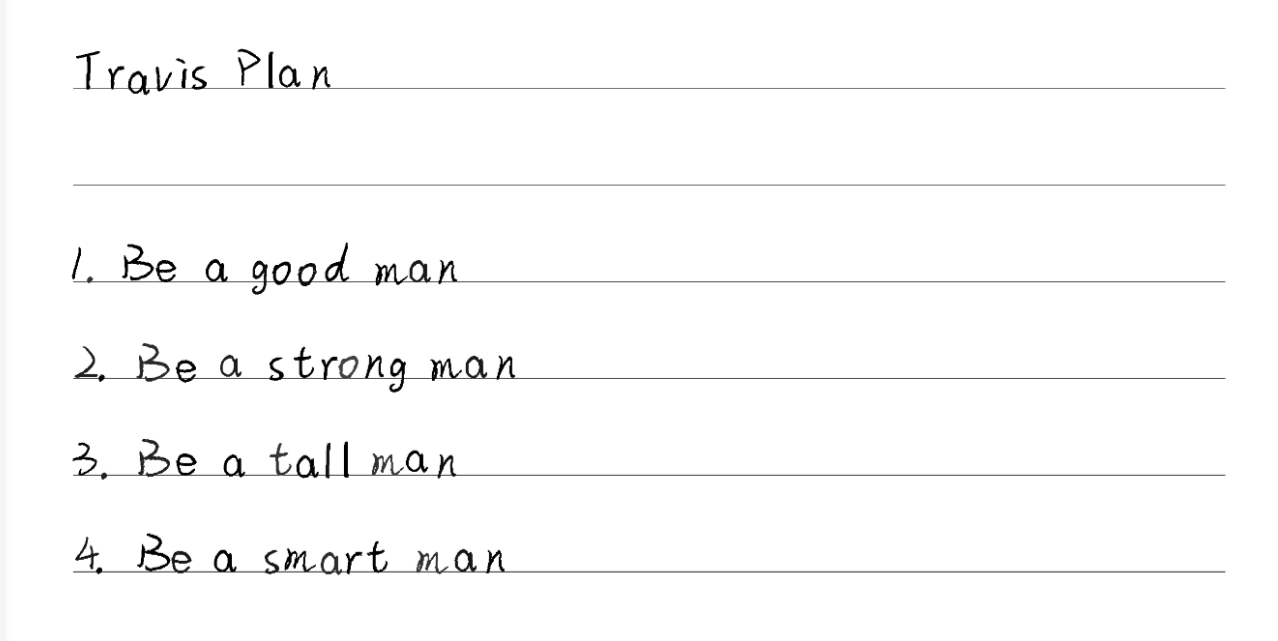 Travis Plan
1. Be a good man
2. Be a strong man
3. Be a tall man
4. Be a smart man